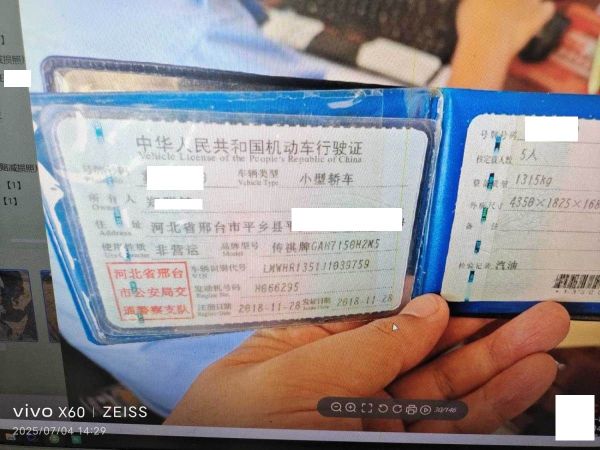 中华人民共和国机动车行驶证
Vehicle License of the People's Republic of China
车辆类型 小型轿车
Vehicle Type
所有人
Owner
住址 河北省邢台市平乡县平
Address
使用性质 非营运 品牌型号 传祺牌GAH7150H2M5
Use Character
河北省邢台
市公安局交
通警察支队
车辆识别代号
VIN
发动机号码 H066295
Engine No.
注册日期 2018-11-28 发证日期 2018-11-28
Register Date Issue Date
号牌号码
核定载人数 5人
整备质量 1315kg
外廓尺寸 4350×1825×168
备注
检验记录 汽油
30/146
vivo X60 | ZEISS
2025/07/04 14:29
【1】
【1】